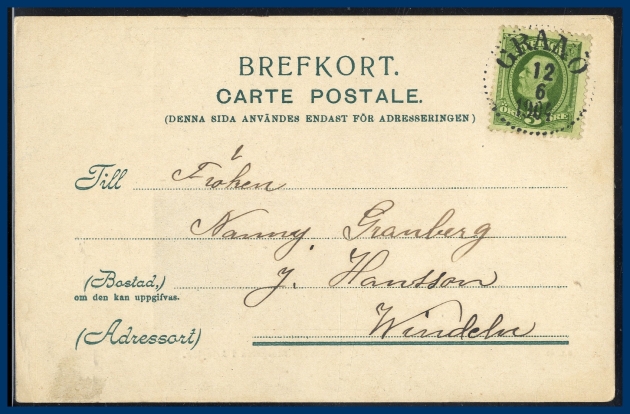 BREFKORT.
CARTE POSTALE.
(DENNA SIDA ANVÄNDES ENDAST FÖR ADRESSERINGEN)
GRAAÖ
12
6
1904
5 ÖRE
Till Fröken
Nanny Granberg
(Bostad,) J. Hansson
om den kan uppgifvas.
(Adressort) Windeln